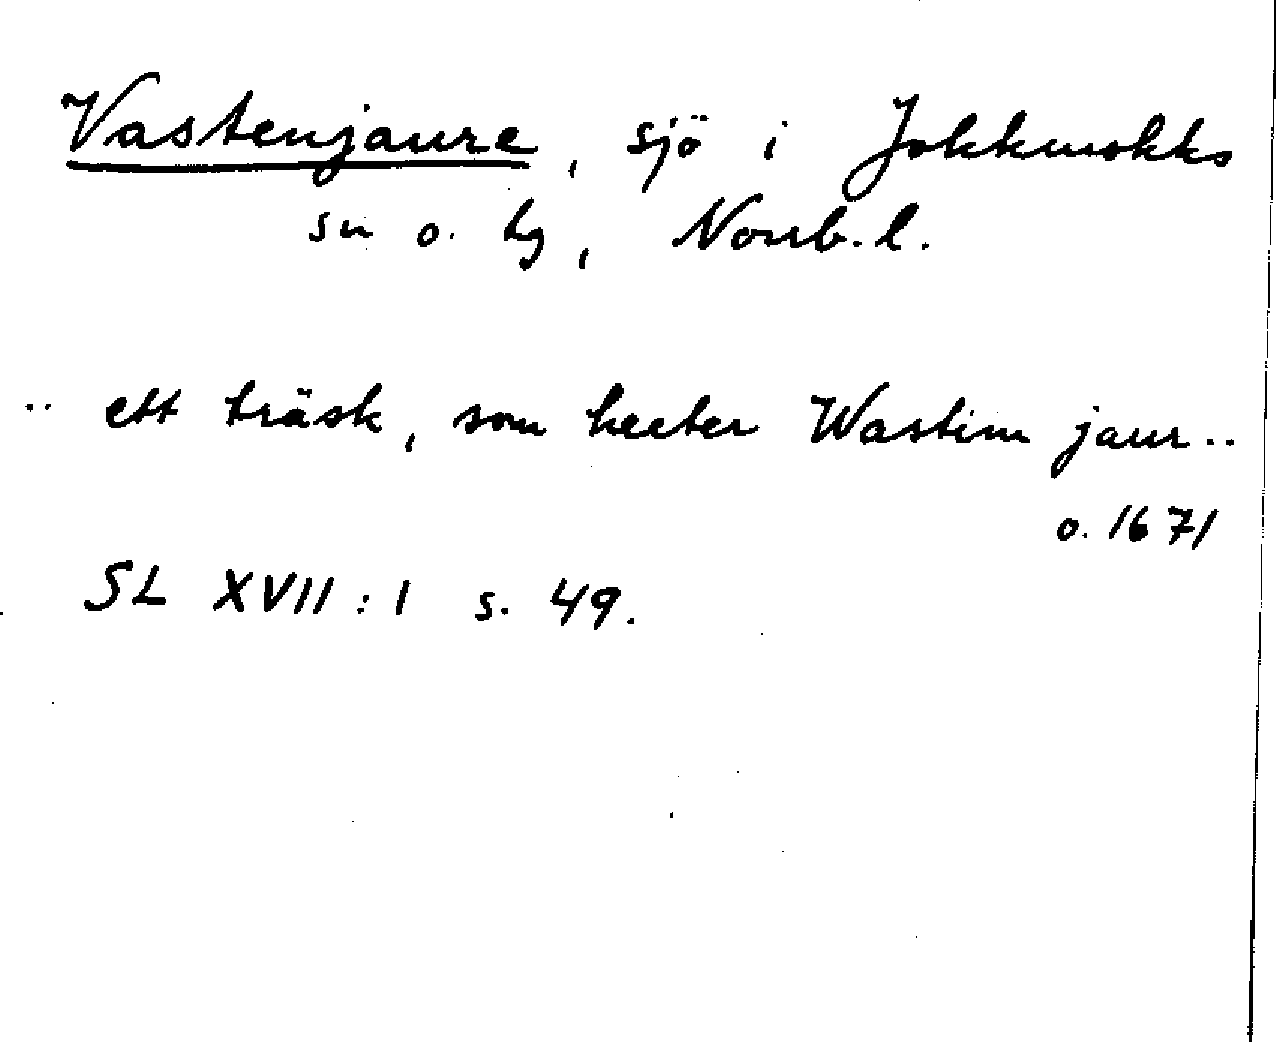 Vastenjaure, sjö i Jokkmokks
sn o. hg, Norrb. l.
.. ett träsk, som heeter Wastim jaur ..
o. 1671
SL XVII:1 s. 49.